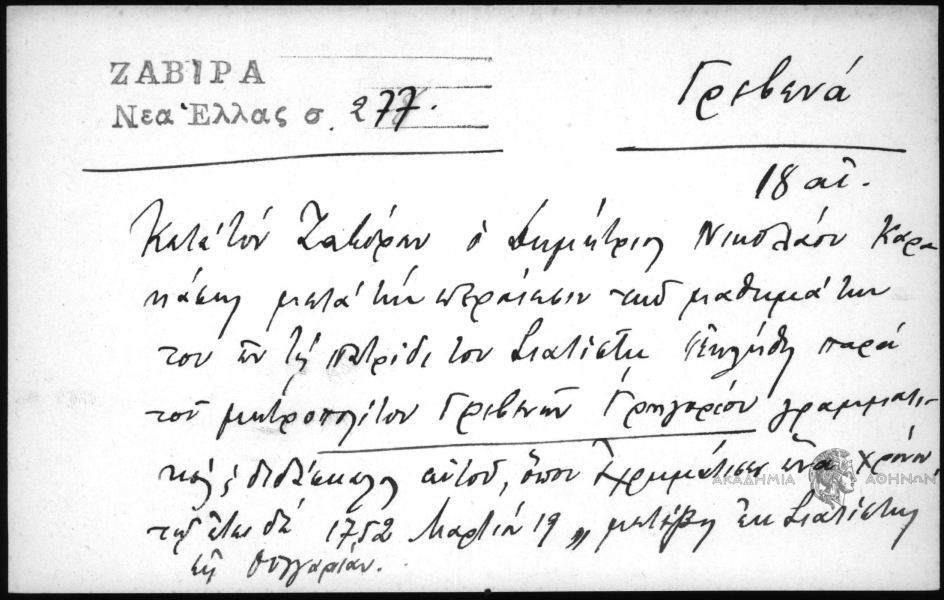 ΖΑΒΙΡΑ
Νεα Ἑλλας σ. 277.
Γρεβενά
18 αἰ.
Κατὰ τὸν Ζαβίραν ὁ Δημήτριος Νικολάου Καρα
κάσης μετὰ τὴν περάτωσιν τῶν μαθημάτων
του ἐν τῇ πατρίδι του Σιατίστῃ ἐκλήθη παρὰ
τοῦ μητροπολίτου Γρεβενῶν Γρηγορίου γραμματι-
κὸς διδάσκαλος αὐτοῦ, ὅπου ἐχρημάτισεν ἕνα χρόνον
τῷ ἔτει δὲ 1752 Μαρτίου 19 „ μετέβη ἐκ Σιατίστης
εἰς Οὑγγαρίαν.
ΑΚΑΔΗΜΙΑ ΑΘΗΝΩΝ